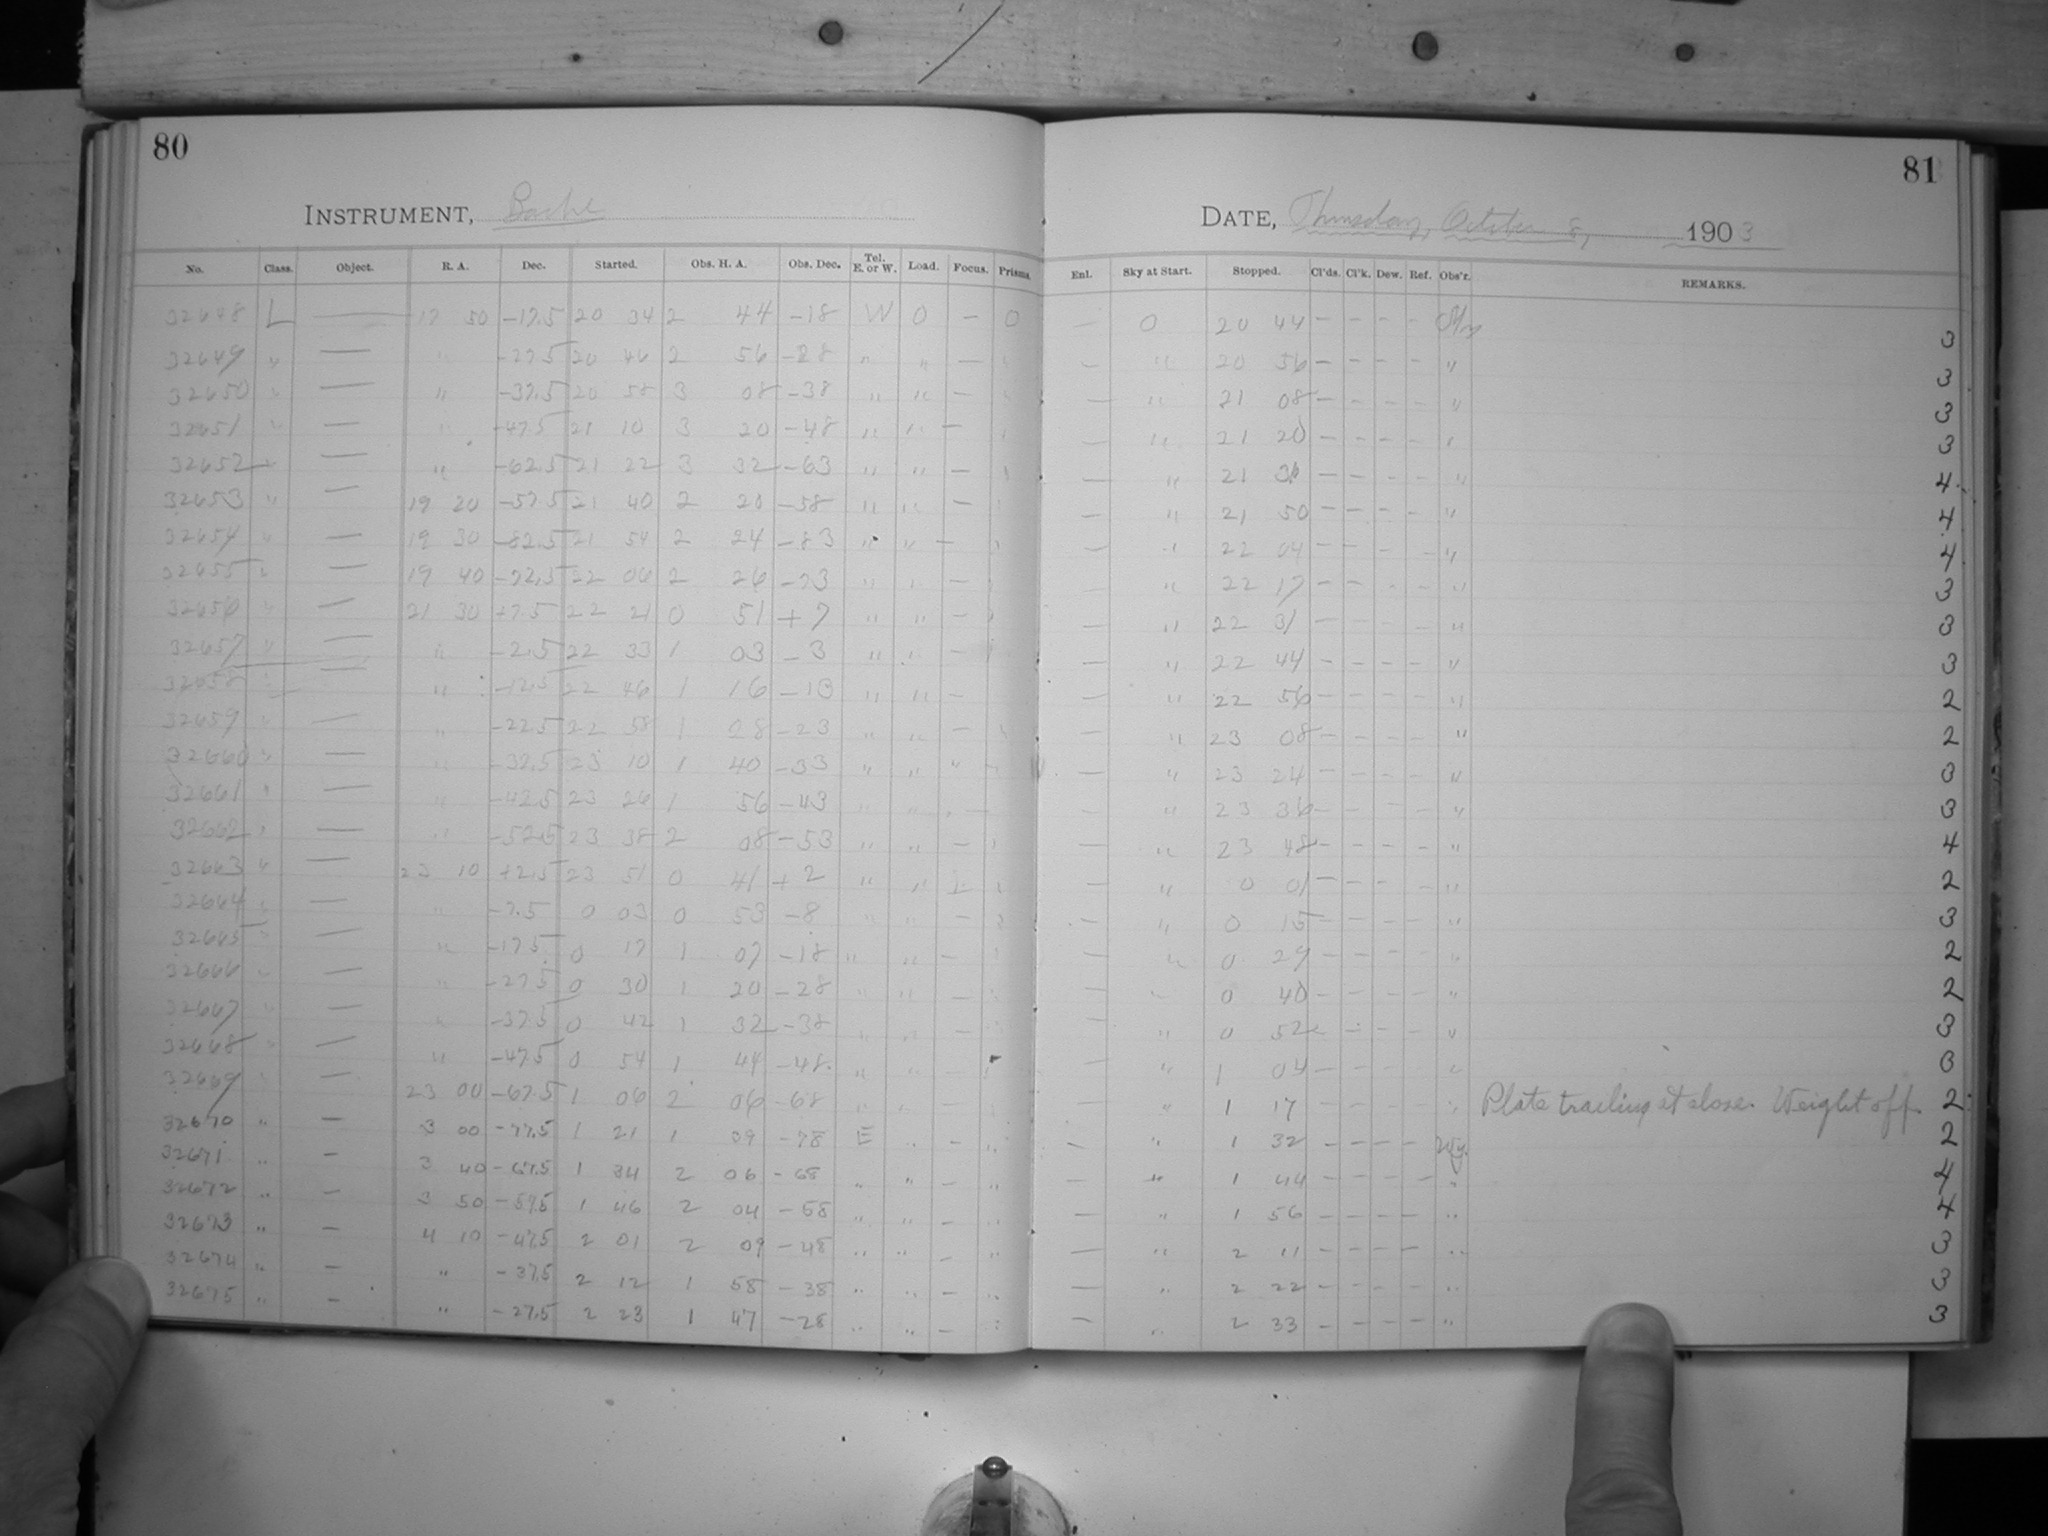 80
INSTRUMENT, Bache
No. Class. Object. R. A. Dec. Started. Obs. H. A. Obs. Dec. Tel. E. or W. Load. Focus. Prisms.
32648 L — 17 50 -17.5 20 34 2 44 -18 W 0 — 0
32649 " — " -27.5 20 46 2 56 -28 " " — "
32650 " — " -37.5 20 58 3 08 -38 " " — "
32651 " — " -47.5 21 10 3 20 -48 " " — "
32652 " — " -62.5 21 22 3 32 -63 " " — "
32653 " — 19 20 -57.5 21 40 2 20 -58 " " — "
32654 " — 19 30 -82.5 21 54 2 24 -83 " " — "
32655 " — 19 40 -72.5 22 06 2 26 -73 " " — "
32656 " — 21 30 +7.5 22 21 0 51 +7 " " — "
32657 " — " -2.5 22 33 1 03 -3 " " — "
32658 " — " -12.5 22 46 1 16 -13 " " —
32659 " — " -22.5 22 58 1 28 -23 " " — "
32660 " — " -32.5 23 10 1 40 -33 " " " —
32661 " — " -42.5 23 26 1 56 -43 " " " —
32662 " — " -52.5 23 38 2 08 -53 " " — "
32663 " — 23 10 +2.5 23 51 0 41 +2 " " — "
32664 " — " -7.5 0 03 0 53 -8 " " — "
32665 " — " -17.5 0 17 1 07 -18 " " — "
32666 " — " -27.5 0 30 1 20 -28 " " — "
32667 " — " -37.5 0 42 1 32 -38 " " — "
32668 " — " -47.5 0 54 1 44 -48 " " — "
32669 " — 23 00 -67.5 1 06 2 06 -68 " " — "
32670 " — 3 00 -77.5 1 21 1 09 -78 E " — "
32671 " — 3 40 -67.5 1 34 2 06 -68 " " — "
32672 " — 3 50 -57.5 1 46 2 04 -58 " " — "
32673 " — 4 10 -47.5 2 01 2 09 -48 " " — "
32674 " — " -37.5 2 12 1 58 -38 " " — "
32675 " — " -27.5 2 23 1 47 -28 " " — "
81
DATE, Thursday, October 8, 1903
Enl. Sky at Start. Stopped. Cl'ds. Cl'k. Dew. Ref. Obs'r. REMARKS.
— 0 20 44 — — — — 3
— " 20 56 — — — — " 3
— " 21 08 — — — — " 3
— " 21 20 — — — — " 3
— " 21 36 — — — — " 4
— " 21 50 — — — — " 4
— " 22 04 — — — — " 4
— " 22 17 — — — — " 3
— " 22 31 — — — — " 3
— " 22 44 — — — — " 3
— " 22 56 — — — — " 2
— " 23 08 — — — — " 2
— " 23 24 — — — — " 3
— " 23 36 — — — — " 3
— " 23 48 — — — — " 4
— " 0 01 — — — — " 2
— " 0 15 — — — — " 3
— " 0 29 — — — — " 2
— " 0 40 — — — — " 2
— " 0 52 — — — — " 3
— " 1 04 — — — — " 3
— " 1 17 — — — — " Plate trailing at close. Weight off. 2
— " 1 32 — — — — Wy. 2
— " 1 44 — — — — " 4
— " 1 56 — — — — " 4
— " 2 11 — — — — " 3
— " 2 22 — — — — " 3
— " 2 33 — — — — " 3